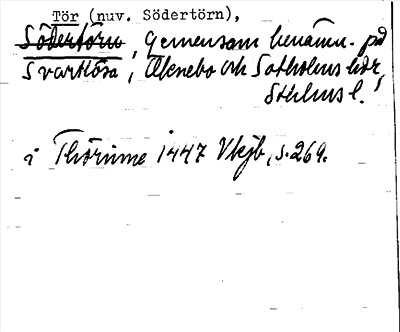 Tör (nuv. Södertörn),
Södertörn, gemensam benämn. på
Svartlösa, Öknebo och Sotholms hdr,
Sthlms l.
i Thörnme 1447 Vkjb, s. 269.